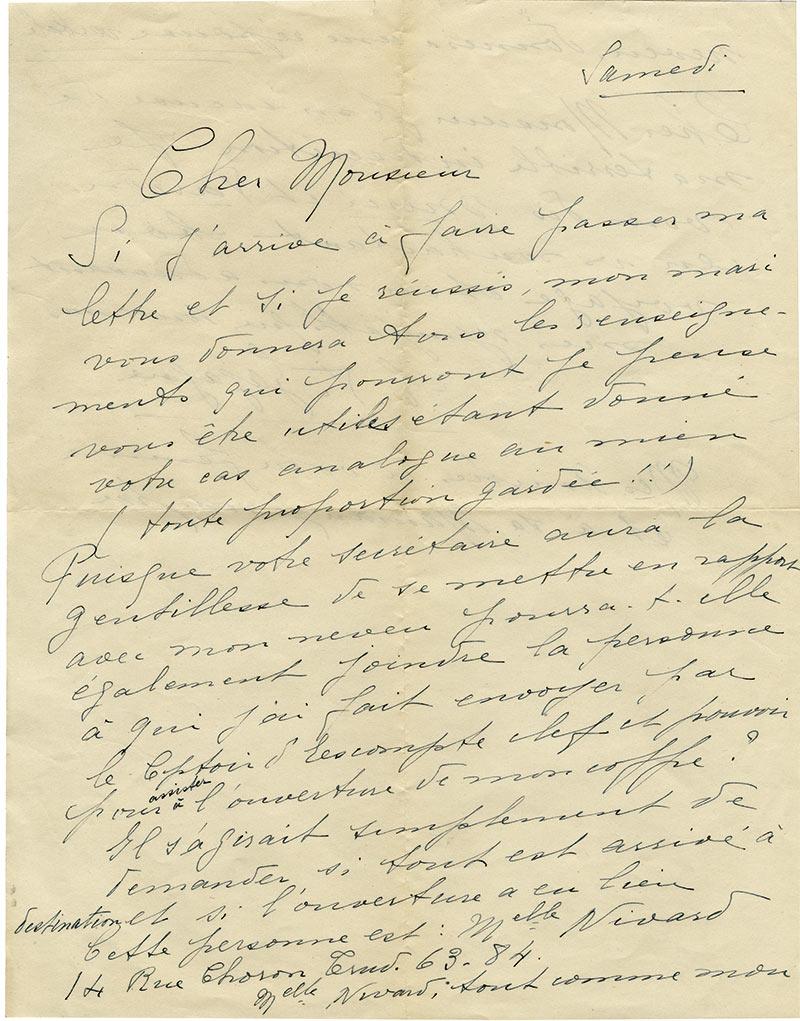 Samedi
Cher Monsieur
Si j'arrive à faire passer ma
lettre et si je réussis, mon mari
vous donnera tous les renseigne-
ments qui pourront je pense
vous être utiles étant donné
votre cas analogue au mien
(toute proportion gardée!!)
Puisque votre secrétaire aura la
gentillesse de se mettre en rapport
avec mon neveu pourra-t-elle
également joindre la personne
à qui j'ai fait envoyer par
le Cptoir d'Escompte clef et pouvoir
pour assister à l'ouverture de mon coffre?
Il s'agirait simplement de
demander si tout est arrivé à
destination et si l'ouverture a eu lieu
Cette personne est: Melle Nivard
14 Rue Choron Trud. 63-84.
Melle Nivard, tout comme mon